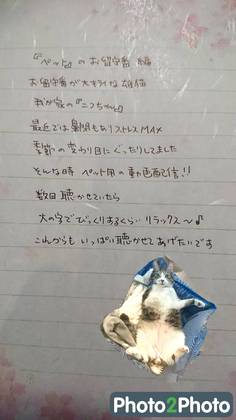 『ペット』のお留守番 編
お留守番が大キライな雄猫
我が家の『ニコちゃん』
最近では鼻閉もありストレスMAX
季節の変わり目にぐったりしてました
そんな時 ペット用の動画配信!!
数回 聴かせていたら
大の字でびっくりするくらい リラックス〜♪
これからも いっぱい聴かせてあげたいです
Photo2Photo